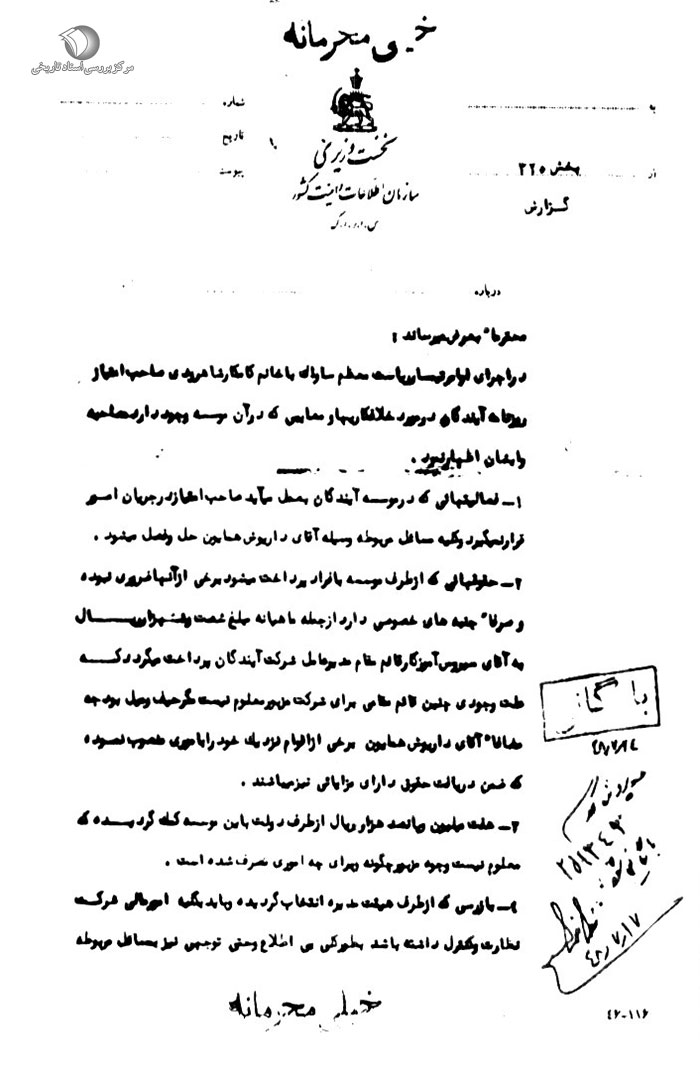 خیلی محرمانه
مرکز بررسی اسناد تاریخی
به
شماره
نخست وزیری
تاریخ
از بخش ۳۲۵
پیوست
سازمان اطلاعات و امنیت کشور
گزارش
س.ا.و.ا.ک
درباره
محترما" بعرض میرساند :
در اجرای اوامر تیمسار ریاست معظم ساواک با خانم کامکار شاهرودی صاحب امتیاز
روزنامه آیندگان در مورد خلافکاریها و معایبی که در آن موسسه وجود دارد مصاحبه
وایشان اظهار نمود .
۱- فعالیتهائی که در موسسه آیندگان بعمل میآید صاحب امتیاز در جریان امور
قرار نمیگیرد وکلیه مسائل مربوطه وسیله آقای داریوش همایون حل وفصل میشود .
۲- حقوقهائی که از طرف موسسه بافراد پرداخت میشود برخی از آنها ضروری نبوده
و صرفا" جنبه های خصوصی دارد ازجمله ماهیانه مبلغ شصت هزار ریال
به آقای سیروس آموزگار قائم مقام مدیرعامل شرکت آیندگان پرداخت میگردد که
علت وجودی چنین قائم مقامی برای شرکت مزبور معلوم نیست مگر حیف ومیل بودجه
مضافا" آقای داریوش همایون برخی از اقوام نزدیک خود را بامور منصوب نموده
که ضمن دریافت حقوق دارای مزایائی نیز میباشند .
۳- هفت میلیون وپانصد هزار ریال از طرف دولت باین موسسه کمک گردیده که
معلوم نیست وجوه مزبور چگونه وبرای چه اموری مصرف شده است .
۴- بازرسی که از طرف هیئت مدیره انتخاب گردیده وباید بکلیه امور مالی شرکت
نظارت وکنترل داشته باشد بطور کلی بی اطلاع وحتی توجهی نیز بمسائل مربوطه
بایگانی
۲۵۱۳۴۹
۴۸/۷/۱۷
خیلی محرمانه
۴۶-۱۱۶